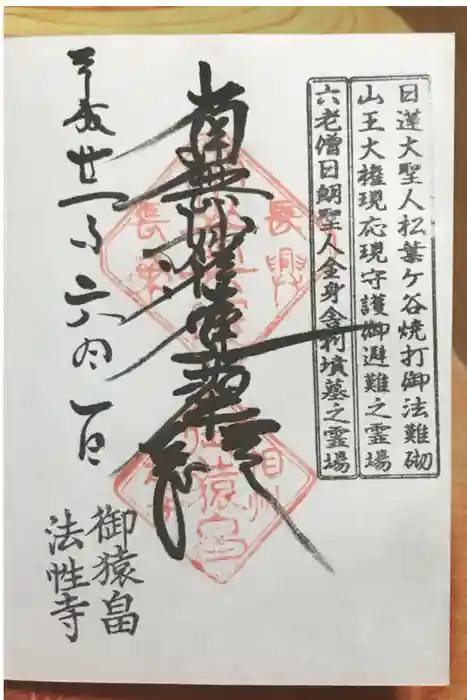 日蓮大聖人松葉ケ谷焼打御法難砌
山王大権現応現守護御避難之霊場
六老僧日朗聖人全身舎利墳墓之霊場
南無妙法蓮華経
平成廿一年六月一日
御猿畠
法性寺
猿畠